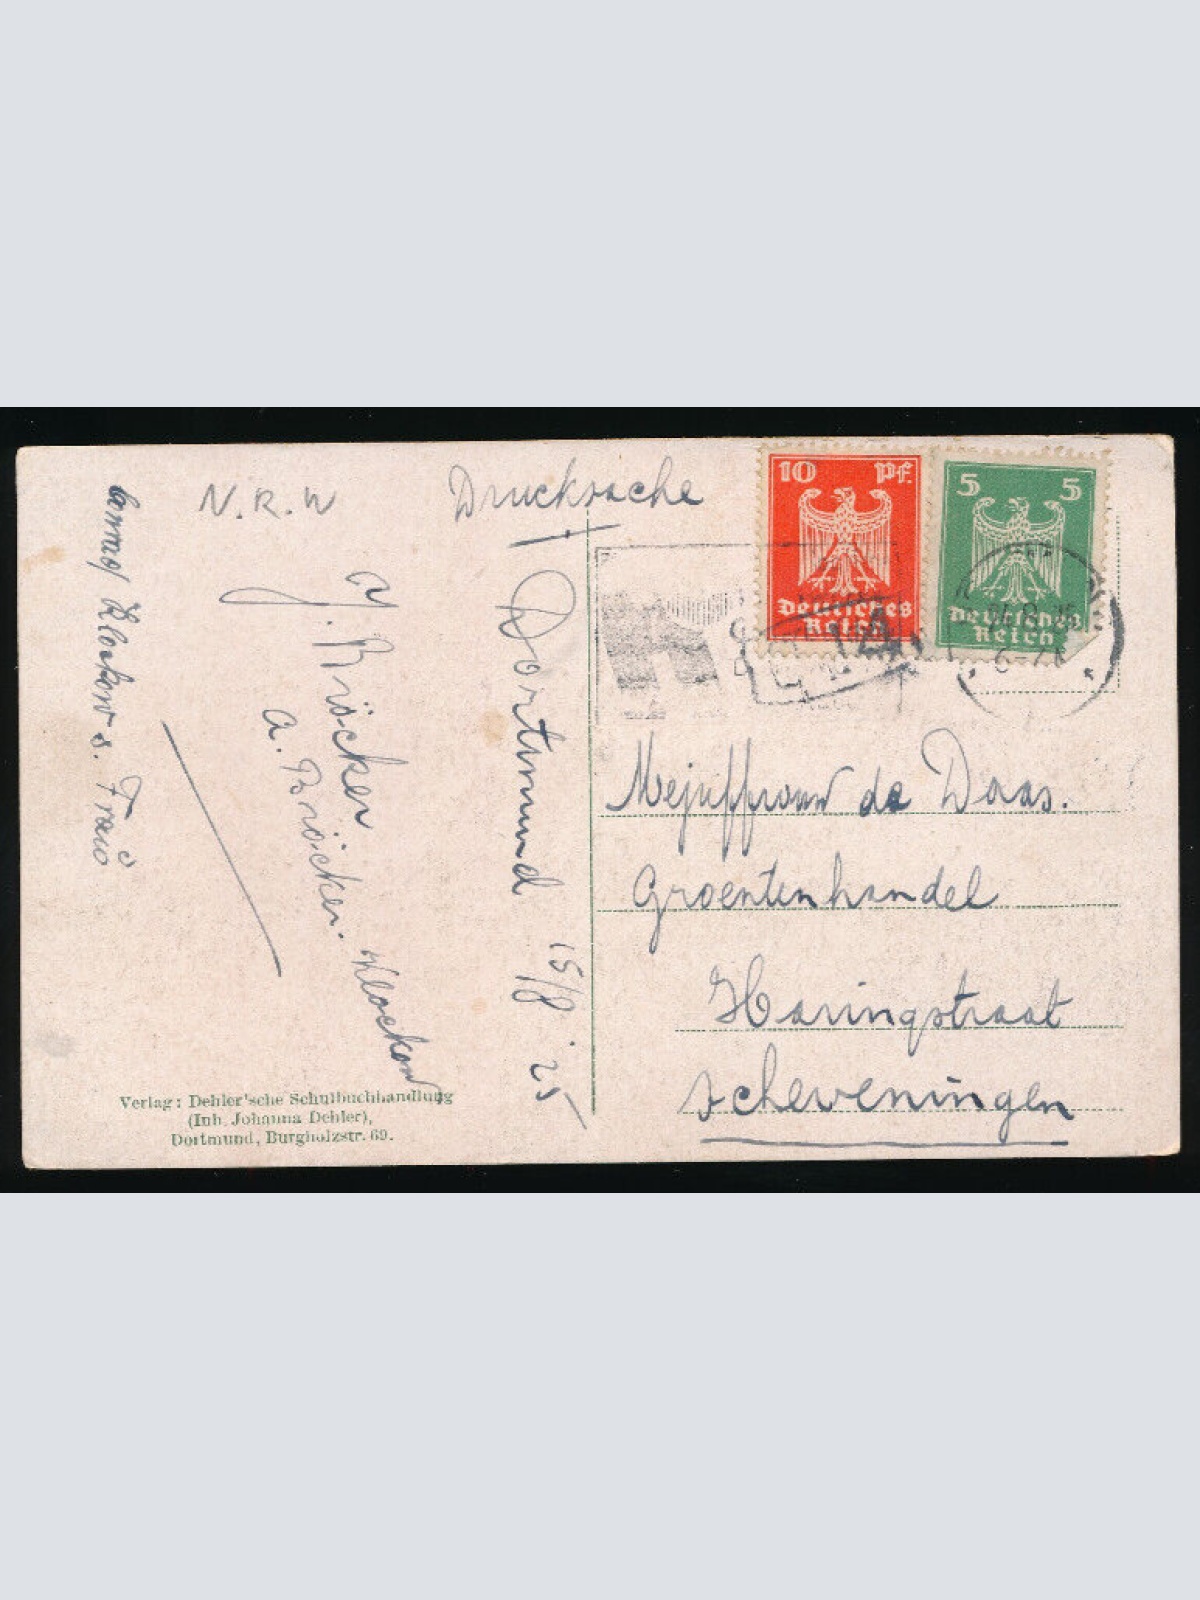 N. R. W
Drucksache
10 Pf.
Deutsches
Reich
5 5
Deutsches
Reich
Dortmund 15/8 '25
J. Bröcker
A. Bröcker. Klockow
Klockow s. Frau
Mejuffrouw de Daas.
Groentenhandel
Haringstraat
Scheveningen
Verlag: Dehler'sche Schulbuchhandlung
(Inh. Johanna Dehler),
Dortmund, Burgholzstr. 69.